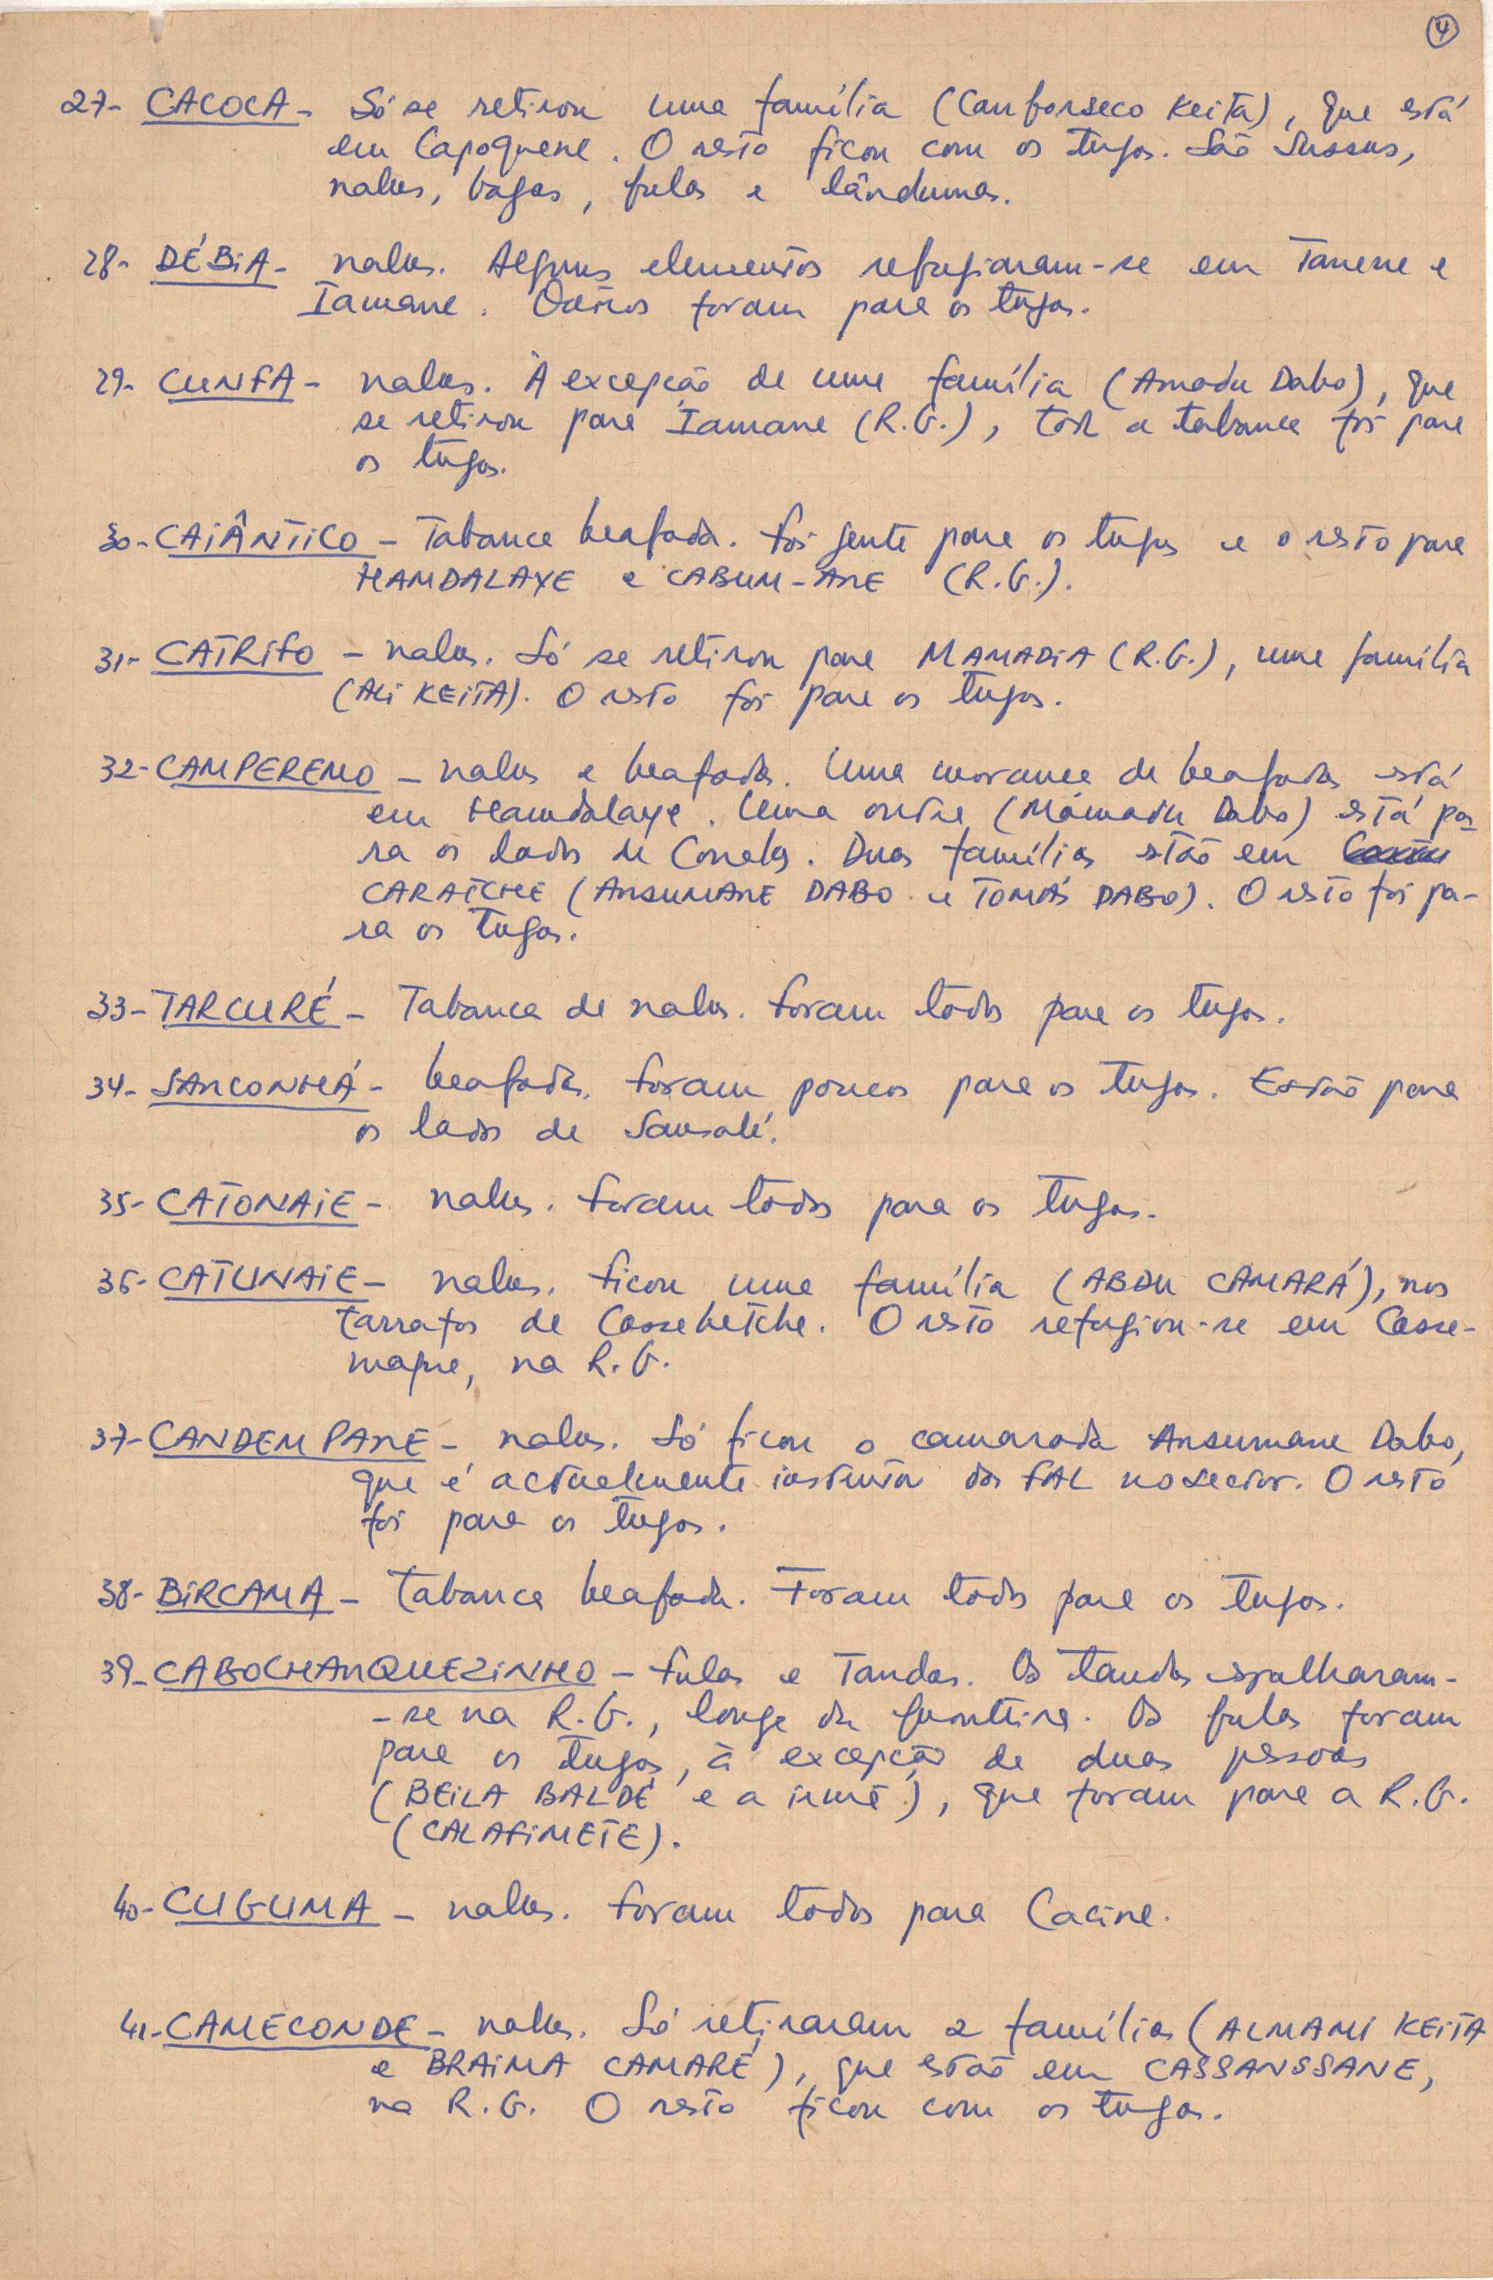 4
27- CACOCA - Só se retirou uma família (Canfonseco Keita), que está
em Capoquene. O resto ficou com os tugas. São Sussus,
nalus, bagas, fulas e lândumas.
28- DÉBIA - nalus. Alguns elementos refugiaram-se em Tanene e
Iamane. Outros foram para os tugas.
29- CUNFA - nalus. À excepção de uma família (Amadu Dabo), que
se retirou para Iamane (R.G.), toda a tabanca foi para
os tugas.
30- CAIÂNTICO - Tabanca beafada. Foi gente para os tugas e o resto para
HAMDALAYE e CABUM-ANE (R.G.).
31- CATRIFO - nalus. Só se retirou para MAMADIA (R.G.), uma família
(ALI KEITA). O resto foi para os tugas.
32- CAMPEREMO - nalus e beafadas. Uma morança de beafadas está
em Hamdalaye. Uma outra (Mamadu Dabo) está pa-
ra os lados de Conela. Duas famílias estão em
CARATCHE (ANSUMANE DABO e TOMÁS DABO). O resto foi pa-
ra os tugas.
33- TARCURÉ - Tabanca de nalus. Foram todos para os tugas.
34- SANCONHÁ - beafadas. Foram poucos para os tugas. Estão para
os lados de Sansalé.
35- CATONAIE - nalus. Foram todos para os tugas.
36- CATUNAIE - nalus. Ficou uma família (ABDU CAMARÁ), nos
tarrafos de Cassebetche. O resto refugiou-se em Casse-
maque, na R.G.
37- CANDEMPANE - nalus. Só ficou o camarada Ansumane Dabo,
que é actualmente instrutor das FAL no sector. O resto
foi para os tugas.
38- BIRCAMA - Tabanca beafada. Foram todos para os tugas.
39- CABOCHANQUEZINHO - fulas e Tandas. Os tandas espalharam-
-se na R.G., longe da fronteira. Os fulas foram
para os tugas, à excepção de duas pessoas
(BEILA BALDÉ e a irmã), que foram para a R.G.
(CALAFIMETE).
40- CUGUMA - nalus. Foram todos para Cacine.
41- CAMECONDE - nalus. Só retiraram 2 famílias (ALMAMI KEITA
e BRAIMA CAMARÉ), que estão em CASSANSSANE,
na R.G. O resto ficou com os tugas.